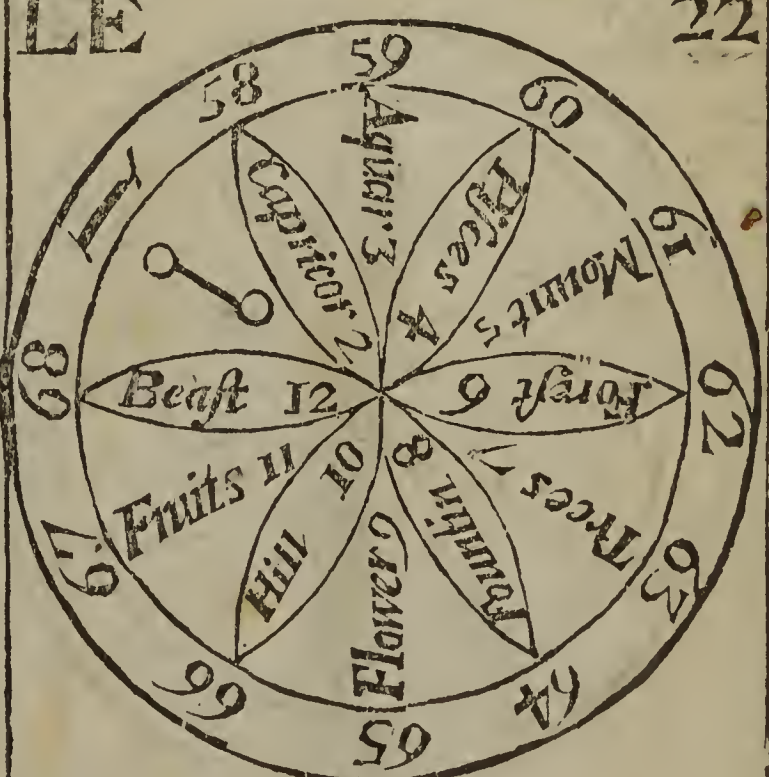 LE
22
I
58
59
60
61
62
63
64
65
66
67
68
Capricor 2
Aquar 3
Piſces 4
Mount 5
Foreſt 6
Trees 7
Fountin 8
Flower 9
Hill 10
Fruits 11
Beaſt 12